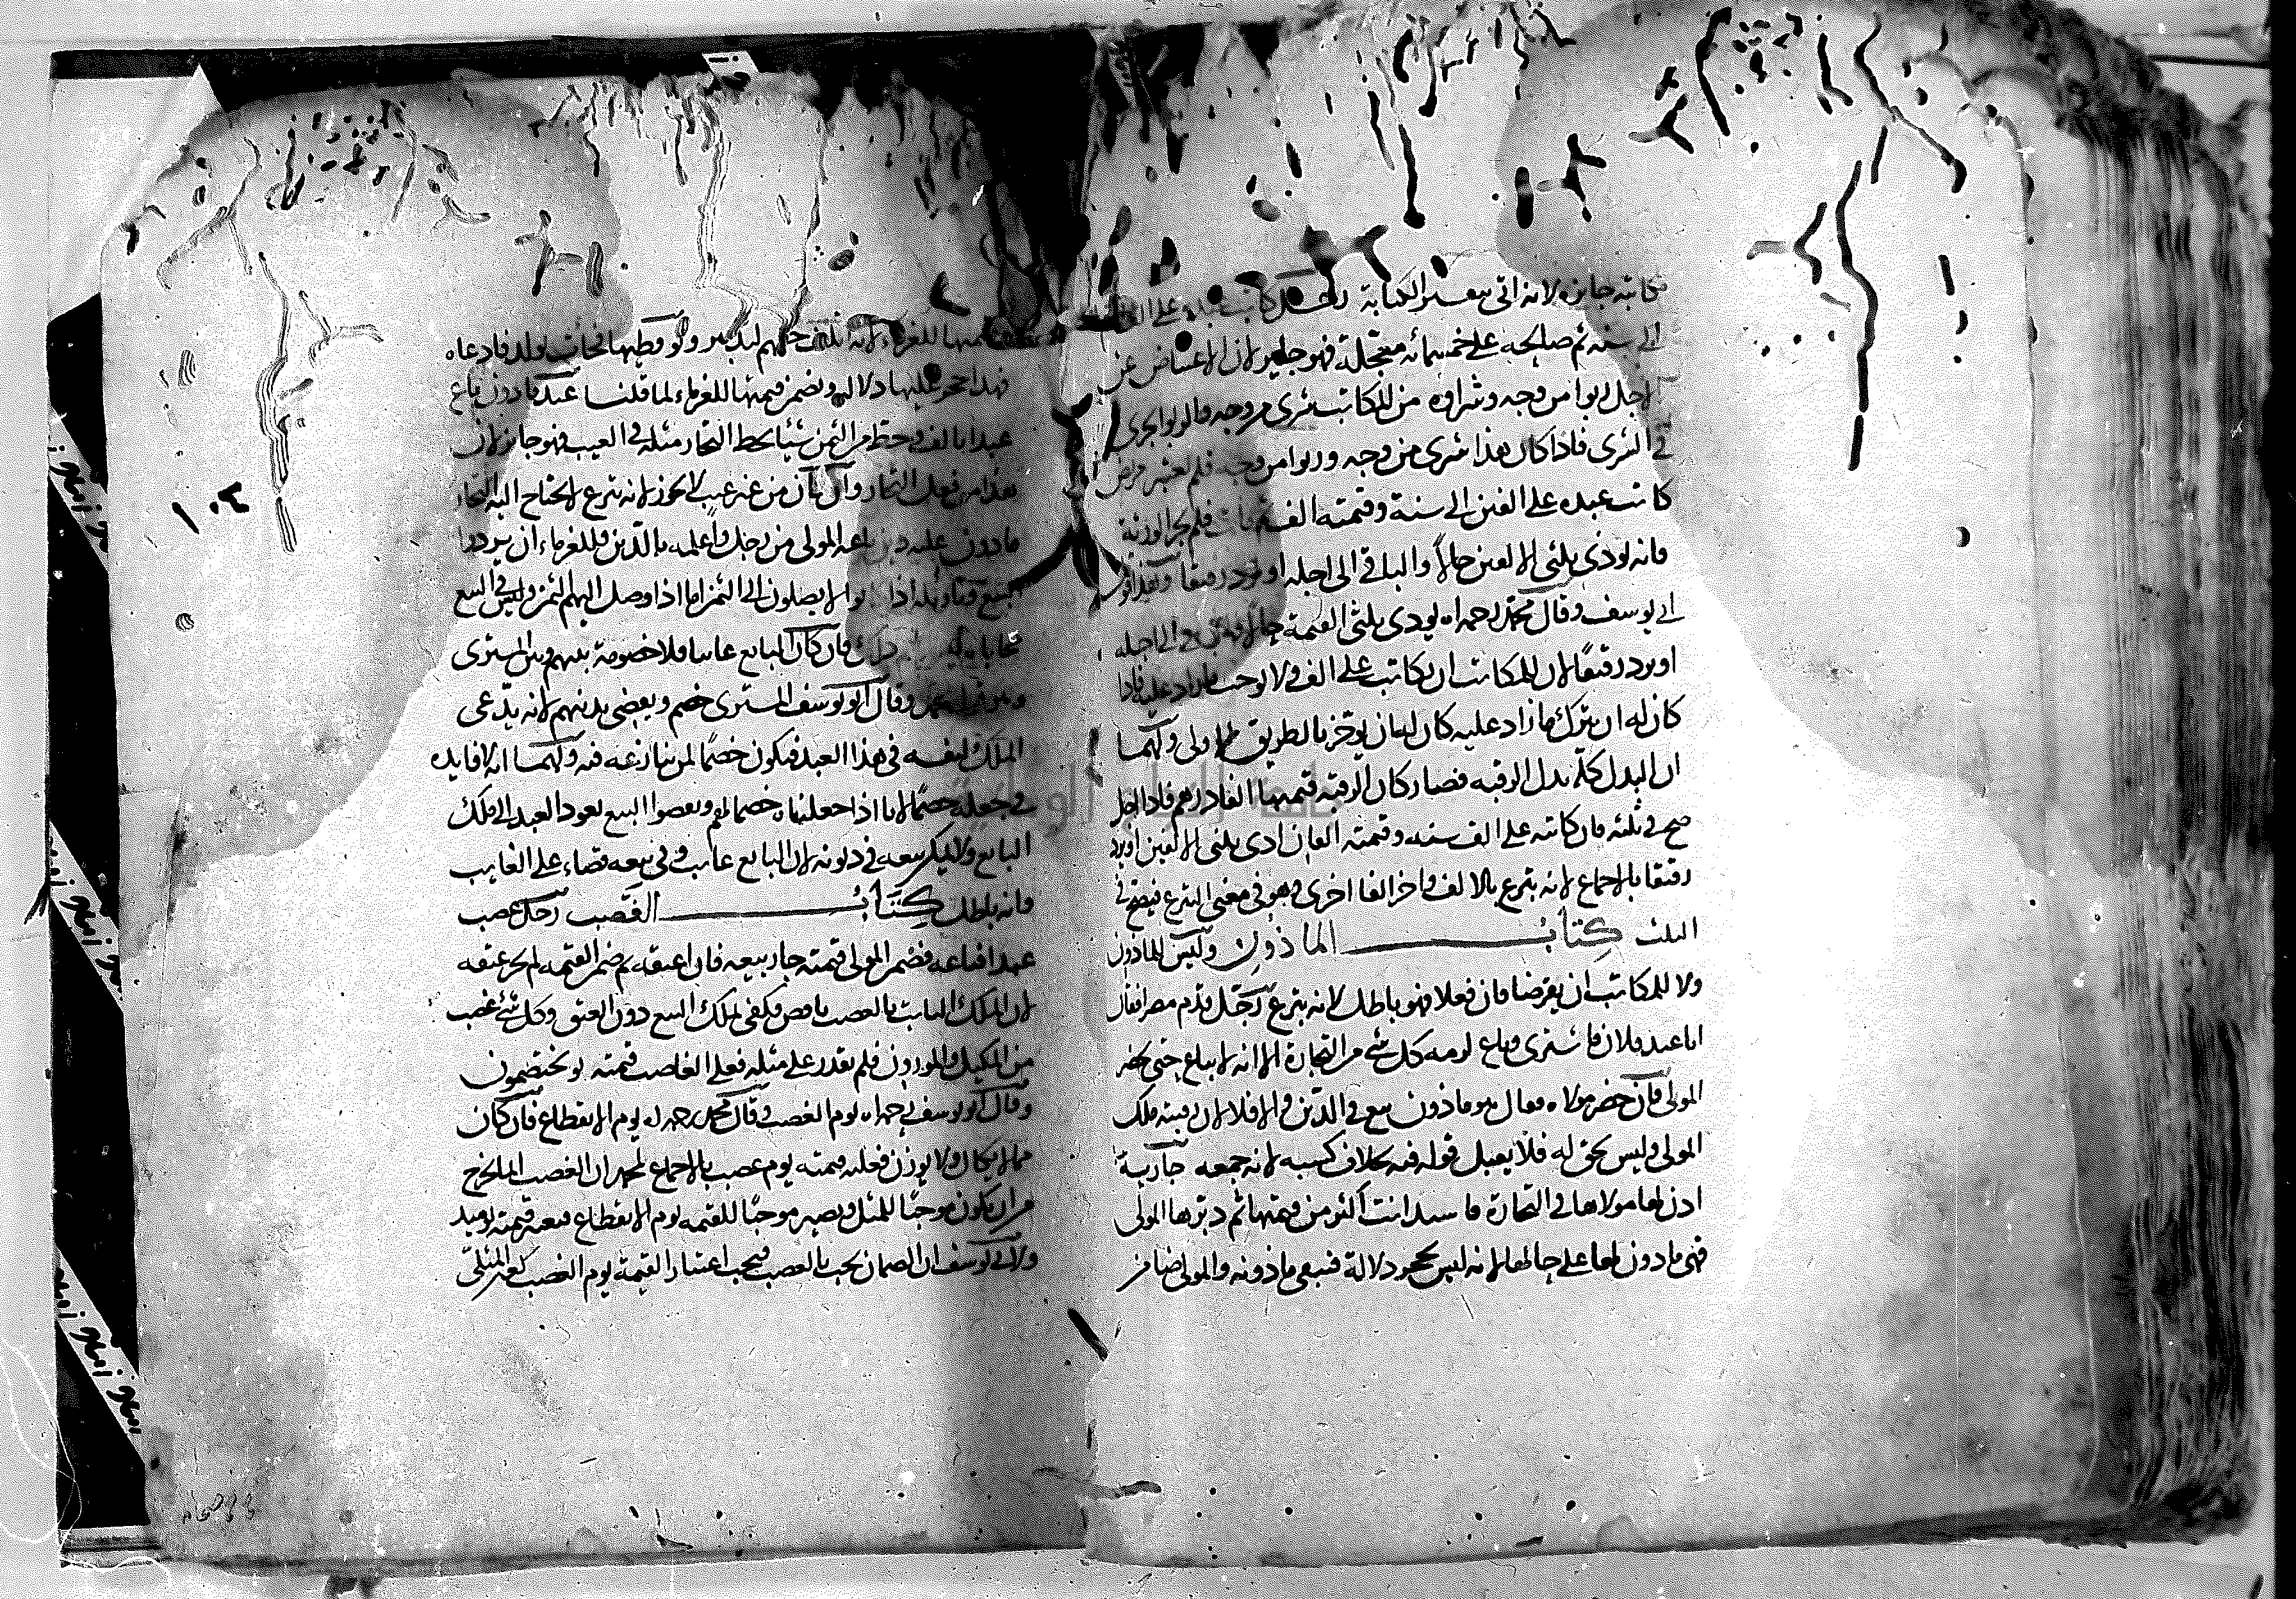 كاتبه جايزه لانه اتى بتفسير الكتابة رجل كاتب عبده على الف
الى سنه ثم صالحه على خمسمائه معجلة فهو جايز لان الاعتياض عن
الاجل ربوا من وجه وشراوه من المكاتب شرى من وجه والربوا يجرى
في الشرى فاذا كان هذا شرى من وجه وربوا من وجه فلم يعتبر مريض
كاتب عبده على الفين الى سنة وقيمته الف ثم مات فلم يجز الورثة
فانه يودى ثلثى الالفين حالا والباقى الى اجله او يرد رقيقا وهذا قو
ابي يوسف وقال محمد رحمه الله يودى ثلثى القيمة حالا والباقي الى اجله
او يرد رقيقا لان للمكاتب ان يكاتب على الف ولا يوجب ما زاد عليه فاذا
كان له ان يترك ما زاد عليه كان له ان يوخر بالطريق الاولى ولهما
ان البدل كله بدل الرقبه فصار كان الرقبه قيمتها الفا درهم فاذا اجل
صح في ثلثه فان كاتبه على الف سنه وقيمته الفان ادى ثلثى الالفين او يرد
رقيقا بالاجماع لانه يتبرع بالالف واخر الفا اخرى وهو في معنى التبرع فيصح في
الثلث كتاب الماذون وليس للماذون
ولا للمكاتب ان يقرضا فان فعلا فهو باطل لانه يتبرع رجل قدم مصرا فقال
انا عبد فلان فاشترى وباع لزمه كل شئ من التجارة الا انه لا يباع حتى يحضر
المولى فان حضر مولاه فقال هو ماذون بيع في الدين والا فلا لان رقبته ملك
المولى وليس بحق له فلا يقبل قوله فيه بخلاف كسبه لانه جمعه جارية
اذن لها مولاها في التجارة فاستدانت اكثر من قيمتها ثم دبرها المولى
فهى ماذون لها على حالها لانه ليس بحجر دلالة فتبقى ماذونه والمولى ضامن
قيمتها للغرماء لانه اتلف حقهم بالتدبير ولو وطيها فجات بولد فادعاه
فهذا حجر عليها دلالة ويضمن قيمتها للغرماء لما قلنا عبد ماذون باع
عبدا بالف وحط من الثمن شيئا يحط التجار مثله في العيب فهو جايز لان
هذا من فعل التجار وان كان من غير عيب لا يجوز لانه تبرع لا يحتاج اليه التجار
ماذون عليه دين باعه المولى من رجل واعلمه بالدين فللغرماء ان يردوا
البيع وتاويله اذا كانوا لا يصلون الى الثمن اما اذا وصل اليهم الثمن وليس في البيع
محاباة ليس لهم ذلك فان كان البايع غايبا فلا خصومة بينهم وبين المشترى
وهو قول محمد وقال ابو يوسف المشترى خصم ويقضى بدينهم لانه يدعى
الملك لنفسه في هذا العبد فيكون خصما لمن ينازعه فيه ولهما انه لا فايده
في جعله خصما لانا اذا جعلناه خصما لهم ونقضوا البيع يعود العبد الى ملك
البايع ولا يمكن بيعه في ديونه لان البايع غايب وفي بيعه قضاء على الغايب
وانه باطل كتاب الغصب رجل غصب
عبدا فباعه فضمن المولى قيمته جاز بيعه فان اعتقه ثم ضمن القيمه لم يجز عتقه
لان الملك الثابت بالغصب ناقص فيكفى لملك البيع دون العتق وكل شئ غصب
من المكيل والموزون فلم يقدر على مثله فعلى الغاصب قيمته يوم يختصمون
وقال ابو يوسف رحمه الله يوم الغصب وقال محمد رحمه الله يوم الانقطاع فان كان
مما لا يكال ولا يوزن فعليه قيمته يوم غصب بالاجماع لمحمد ان الغصب انما خرج
من ان يكون موجبا للمثل ويصير موجبا للقيمه يوم الانقطاع فيعتبر قيمته يوميذ
ولابي يوسف ان الضمان يجب بالغصب فيجب اعتبار القيمة يوم الغصب كغير المثلى
١٠٣